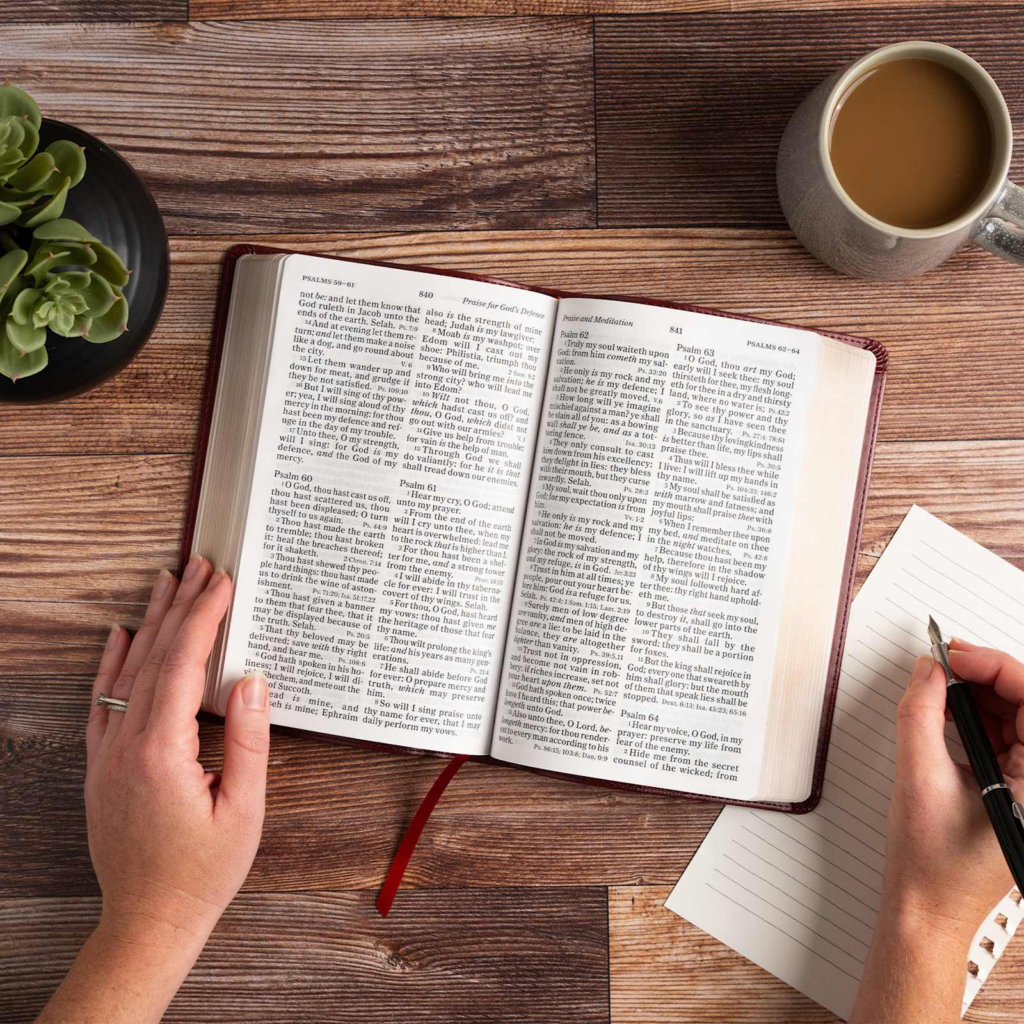 PSALMS 59–61
840
Praise for God's Defence
not be: and let them know that
God ruleth in Jacob unto the
ends of the earth. Selah. Ps. 7:9
14 And at evening let them re-
turn; and let them make a noise
like a dog, and go round about
the city. V. 6
15 Let them wander up and
down for meat, and grudge if
they be not satisfied. Ps. 109:10
16 But I will sing of thy pow-
er; yea, I will sing aloud of thy
mercy in the morning: for thou
hast been my defence and ref-
uge in the day of my trouble.
17 Unto thee, O my strength,
will I sing: for God is my
defence, and the God of my
mercy.
Psalm 60
1 O God, thou hast cast us off,
thou hast scattered us, thou
hast been displeased; O turn
thyself to us again. Ps. 44:9
2 Thou hast made the earth
to tremble; thou hast broken
it: heal the breaches thereof;
for it shaketh. 2 Chron. 7:14
3 Thou hast shewed thy peo-
ple hard things: thou hast made
us to drink the wine of aston-
ishment. Ps. 71:20; Isa. 51:17,22
4 Thou hast given a banner
to them that fear thee, that it
may be displayed because of
the truth. Selah. Ps. 20:5
5 That thy beloved may be
delivered; save with thy right
hand, and hear me. Ps. 108:6
6 God hath spoken in his ho-
liness; I will rejoice, I will di-
chem, and mete out the
of Succoth.
ead is mine, and
seh is mine; Ephraim
also is the strength of mine
head; Judah is my lawgiver;
8 Moab is my washpot; over
Edom will I cast out my
shoe: Philistia, triumph thou
because of me. 2 Sam. 8:2
9 Who will bring me into the
strong city? who will lead me
into Edom?
10 Wilt not thou, O God,
which hadst cast us off? and
thou, O God, which didst not
go out with our armies? V. 1
11 Give us help from trouble:
for vain is the help of man.
12 Through God we shall
do valiantly: for he it is that
shall tread down our enemies.
Psalm 61
1 Hear my cry, O God; attend
unto my prayer.
2 From the end of the earth
will I cry unto thee, when my
heart is overwhelmed: lead me
to the rock that is higher than I
3 For thou hast been a shel-
ter for me, and a strong tower
from the enemy. Prov. 18:10
4 I will abide in thy taberna-
cle for ever: I will trust in the
covert of thy wings. Selah.
5 For thou, O God, hast heard
my vows: thou hast given me
the heritage of those that fear
thy name.
6 Thou wilt prolong the king's
life: and his years as many gen-
erations. Ps. 21:4
7 He shall abide before God
for ever: O prepare mercy and
truth, which may preserve
him.
8 So will I sing praise unto
thy name for ever, that I may
daily perform my vows.
Praise and Meditation
841
PSALMS 62–64
Psalm 62
1 Truly my soul waiteth upon
God: from him cometh my sal-
vation. Ps. 33:20
2 He only is my rock and my
salvation; he is my defence; I
shall not be greatly moved. V. 6
3 How long will ye imagine
mischief against a man? ye shall
be slain all of you: as a bowing
wall shall ye be, and as a tot-
tering fence. Isa. 30:13
4 They only consult to cast
him down from his excellency:
they delight in lies: they bless
with their mouth, but they curse
inwardly. Selah. Ps. 28:3
5 My soul, wait thou only upon
God; for my expectation is from
him. Vv. 1-2
6 He only is my rock and my
salvation: he is my defence; I
shall not be moved.
7 In God is my salvation and my
glory: the rock of my strength,
and my refuge, is in God. Jer. 3:23
8 Trust in him at all times; ye
people, pour out your heart be-
fore him: God is a refuge for us.
Selah. Ps. 42:4; 1 Sam. 1:15; Lam. 2:19
9 Surely men of low degree
are vanity, and men of high de-
gree are a lie: to be laid in the
balance, they are altogether
lighter than vanity. Ps. 39:5,11
10 Trust not in oppression,
and become not vain in rob-
bery: if riches increase, set not
your heart upon them. Ps. 52:7
11 God hath spoken once; twice
have I heard this; that power be-
longeth unto God.
12 Also unto thee, O Lord, be-
longeth mercy: for thou render-
est to every man according to his
work. Ps. 86:15; 103:8; Dan. 9:9
Psalm 63
1 O God, thou art my God;
early will I seek thee: my soul
thirsteth for thee, my flesh long-
eth for thee in a dry and thirsty
land, where no water is; Ps. 42:2
2 To see thy power and thy
glory, so as I have seen thee
in the sanctuary. Ps. 27:4; 78:61
3 Because thy lovingkindness
is better than life, my lips shall
praise thee. Ps. 30:5
4 Thus will I bless thee while
I live: I will lift up my hands in
thy name. Ps. 104:33; 146:2
5 My soul shall be satisfied as
with marrow and fatness; and
my mouth shall praise thee with
joyful lips: Ps. 36:8
6 When I remember thee upon
my bed, and meditate on thee
in the night watches. Ps. 42:8
7 Because thou hast been my
help, therefore in the shadow
of thy wings will I rejoice.
8 My soul followeth hard af-
ter thee: thy right hand uphold-
eth me.
9 But those that seek my soul,
to destroy it, shall go into the
lower parts of the earth.
10 They shall fall by the
sword: they shall be a portion
for foxes.
11 But the king shall rejoice in
God; every one that sweareth by
him shall glory: but the mouth
of them that speak lies shall be
stopped. Deut. 6:13; Isa. 45:23; 65:16
Psalm 64
1 Hear my voice, O God, in my
prayer: preserve my life from
fear of the enemy.
2 Hide me from the secret
counsel of the wicked; from